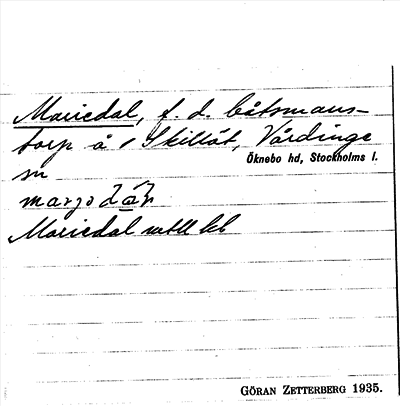 Mariedal, f. d. båtsmans-
torp å 1 Skillöt, Vårdinge
Öknebo hd, Stockholms l.
sn
Mariedal
GÖRAN ZETTERBERG 1935.